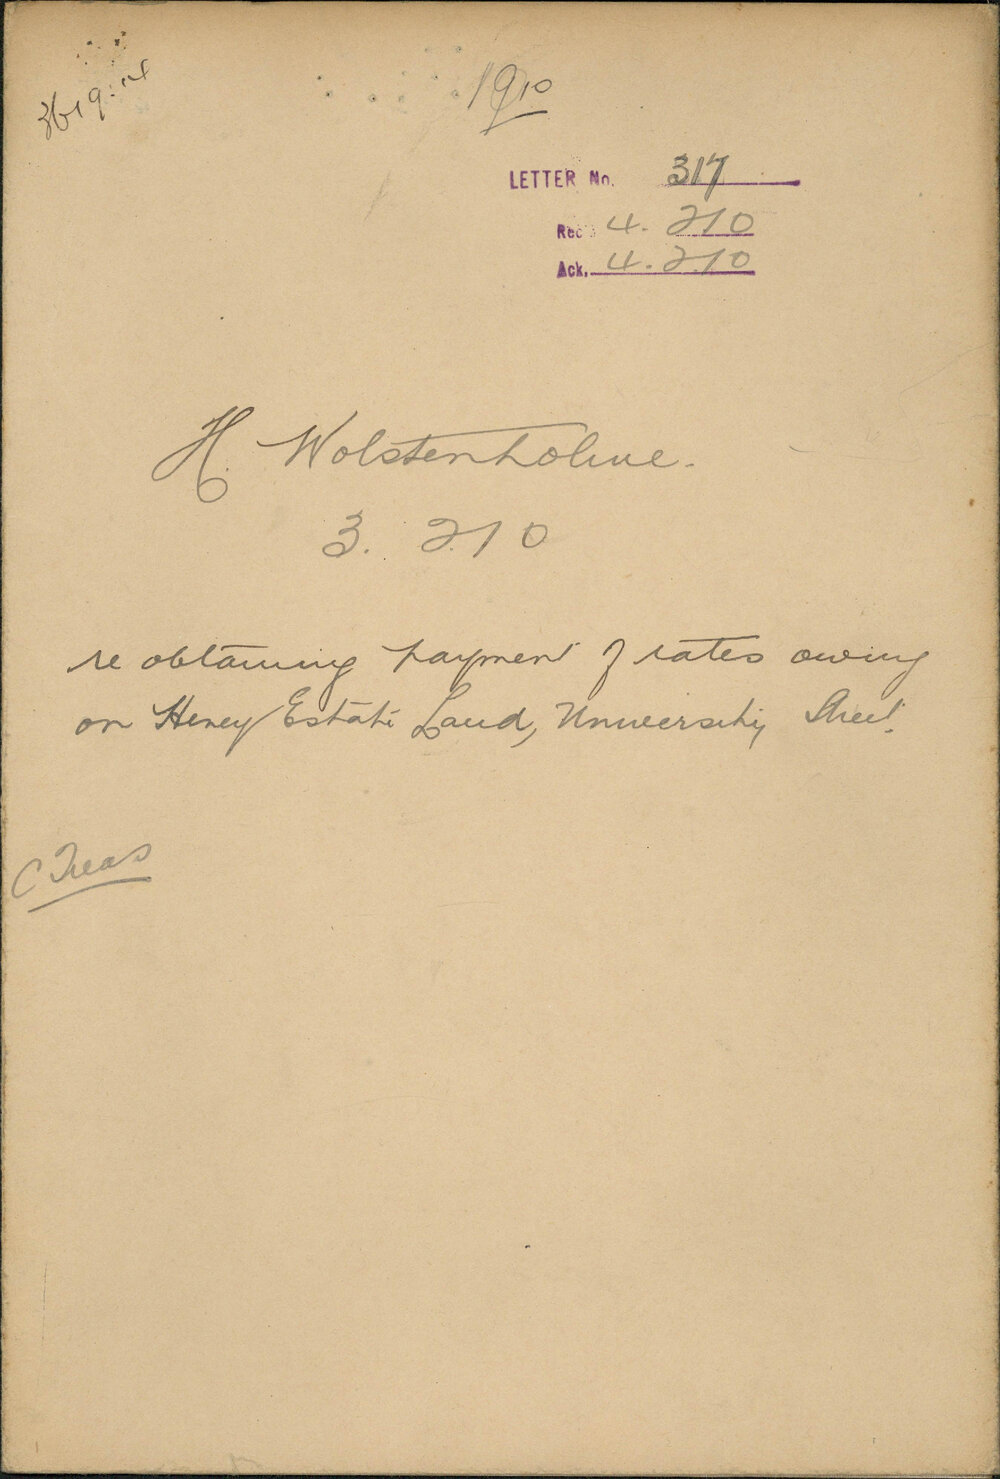 1910
LETTER No. 317
Rec 4. 2 10
Ack. 4. 2. 10
H. Wolstenholme.
3. 2. 10
re obtaining payment of rates owing
on Henry Estate Land, University Street.
C Treas